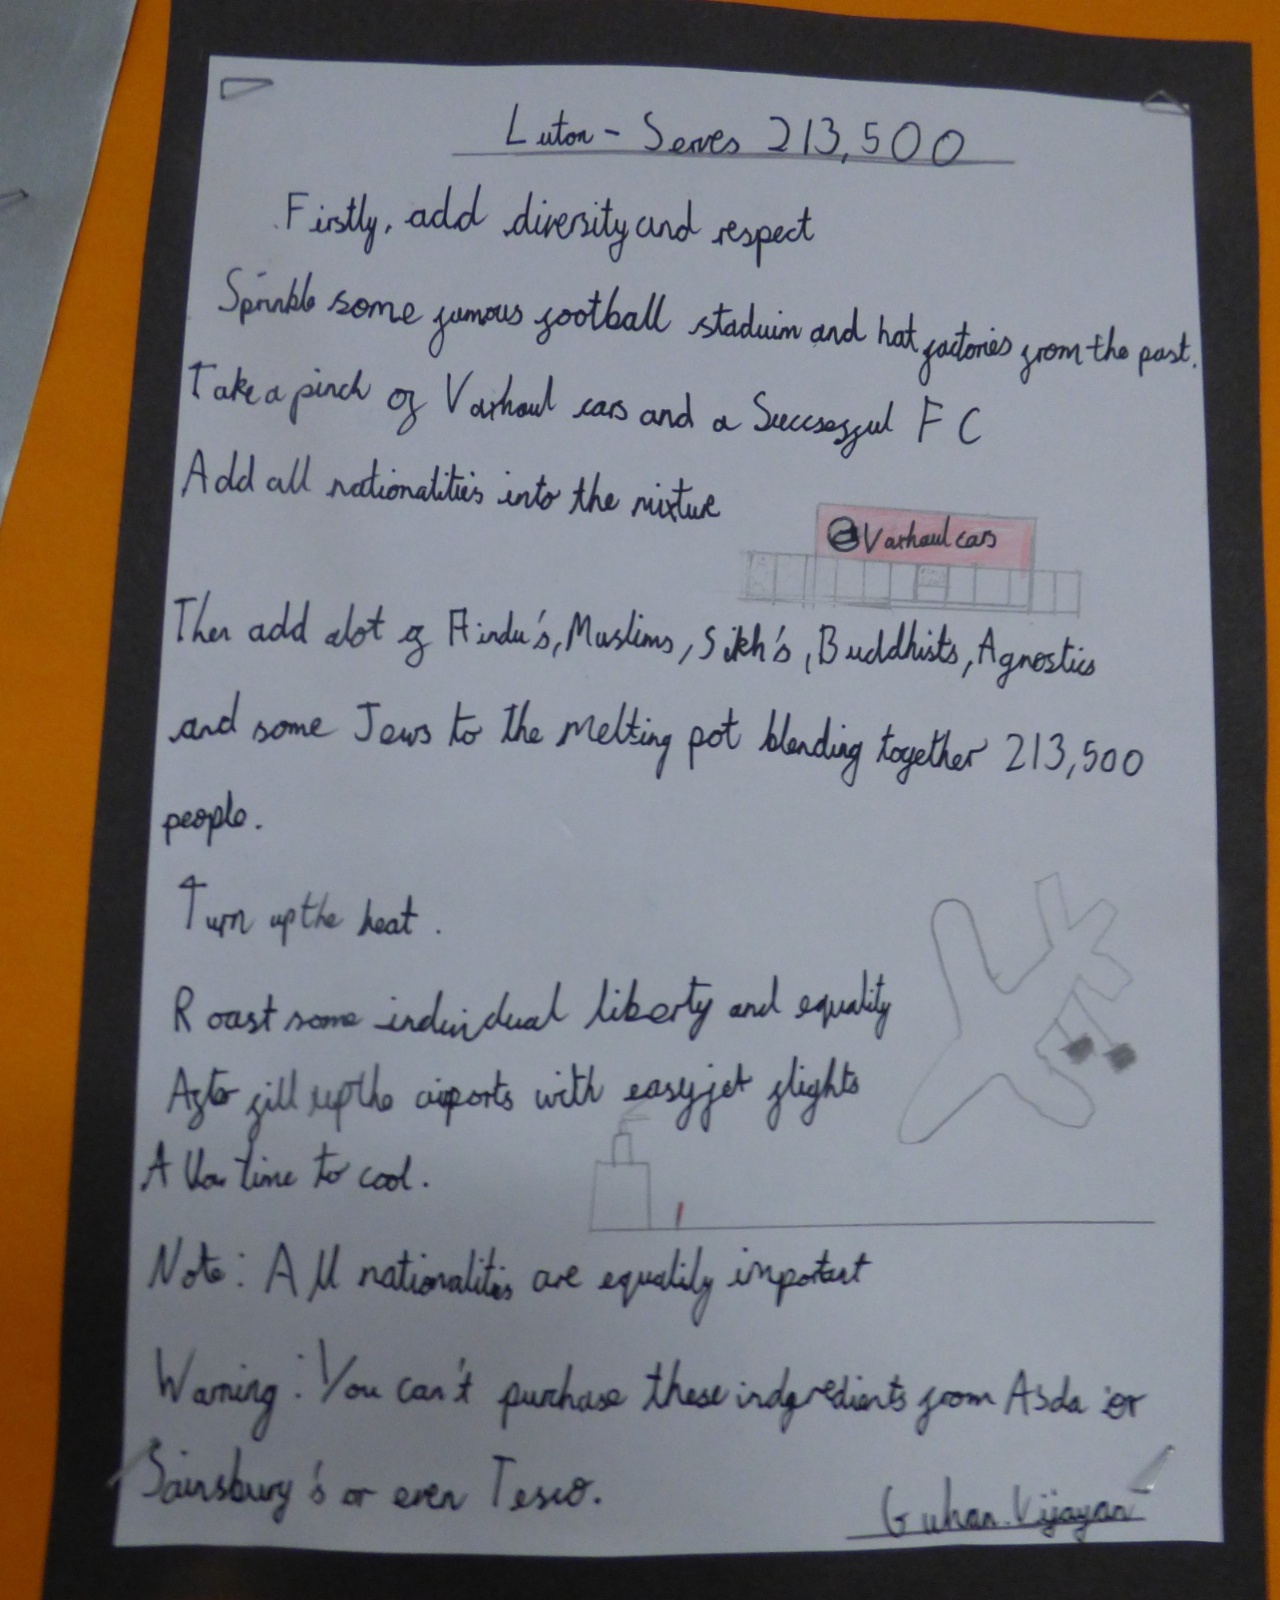 Luton - Serves 213,500
Firstly, add diversity and respect
Sprinkle some famous football staduim and hat factories from the past.
Take a pinch of Vaxhaul cars and a Succsessful FC
Add all nationalities into the mixture
Vaxhaul cars
Then add alot of Hindu's, Muslims, Sikh's, Buddhists, Agnostics
and some Jews to the melting pot blending together 213,500
people.
Turn up the heat.
Roast some individual liberty and equality
After fill up the airports with easyjet flights
Allow time to cool.
Note: All nationalities are equalily important
Warning: You can't purchase these indgredients from Asda or
Sainsbury's or even Tesco.
Guhan.Vijayan